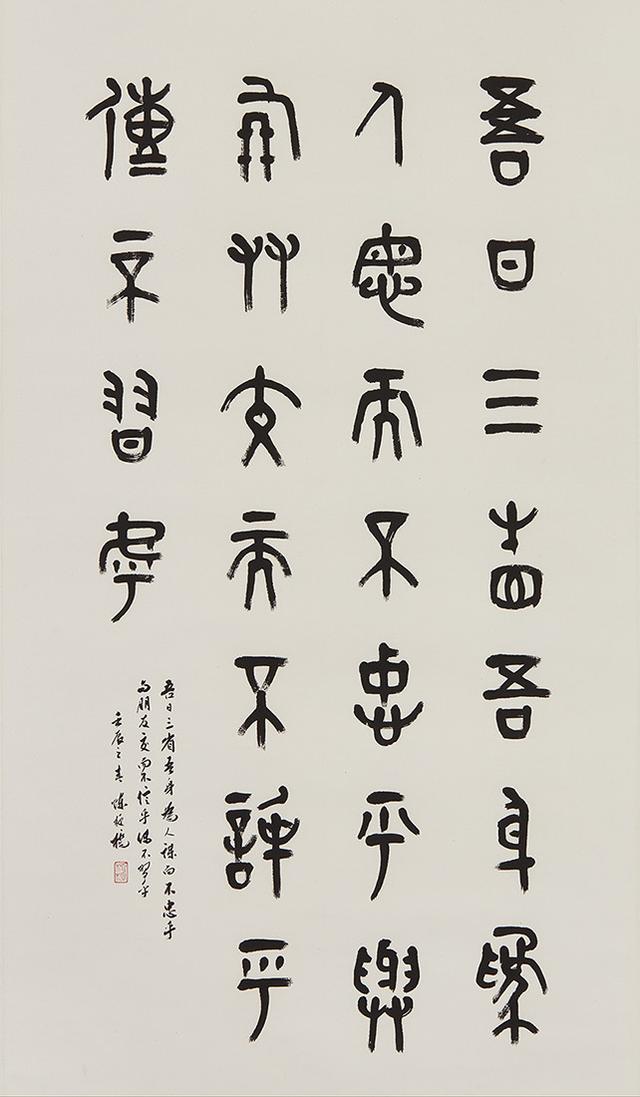 吾日三省吾身為
人謀而不忠乎與
朋友交而不信乎
傳不習乎
吾日三省吾身為人謀而不忠乎
与朋友交而不信乎傳不習乎
壬辰之春